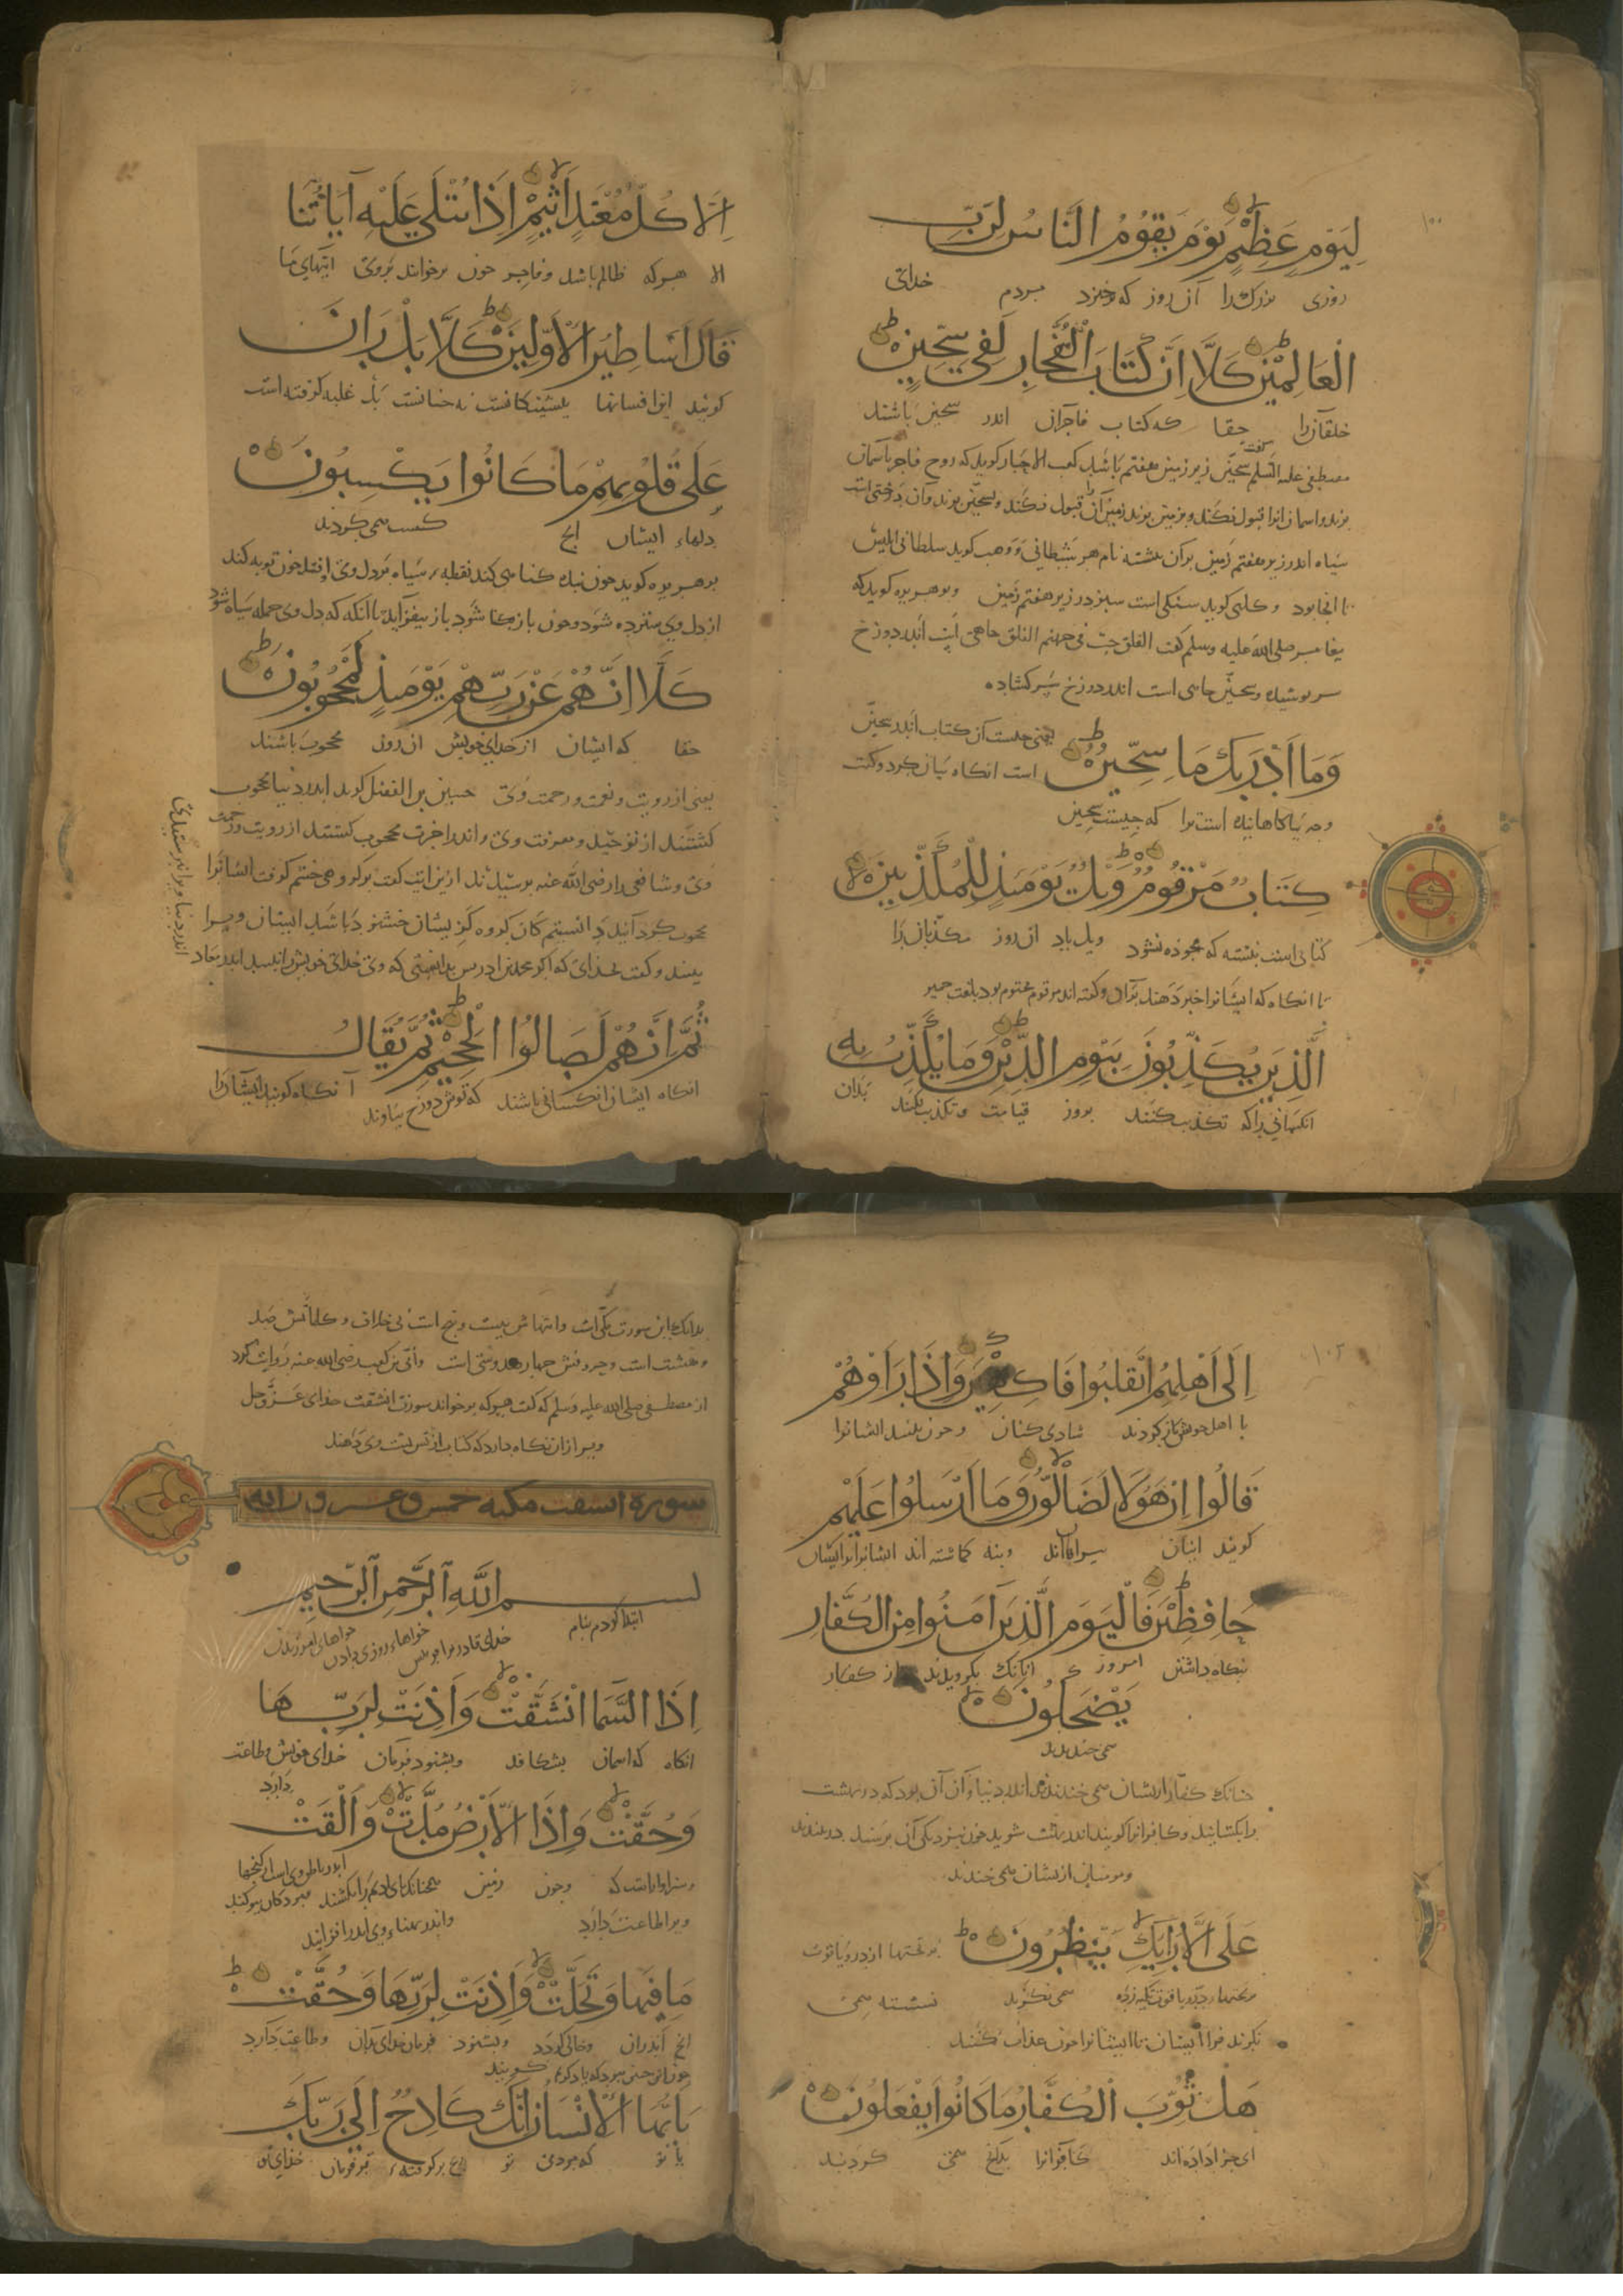 ۱۰۰
لِيَوْمٍ عَظِيْمٍ يَوْمَ يَقُوْمُ النَّاسُ لِرَبِّ
روزی بزرك را آن روز که برخیزد مردم خدای
الْعَالَمِيْنَ كَلَّا اِنَّ كِتَابَ الْفُجَّارِ لَفِيْ سِجِّيْنٍ
خلقان را حقا که کتاب فاجران اندر سجین باشند
مصطفی علیه السلم گفت سجین زیر زمین هفتم باشد کعب الاحبار کوید که روح فاجر باسمان
برند و اسمان انرا قبول نکند و بزمین برند زمین آن را قبول نکند و بسجین برند و آن درختی است
سیاه اندر زیر هفتم زمین بران نبشته نام هر شیطانی و وهب کوید سلطانی ابلیس
تا انجا بود و کلبی کوید سنکی است سبز در زیر هفتم زمین و بوهریره کوید که
پیغامبر صلی الله علیه وسلم کفت الفلق جب فی جهنم الفلق چاهی است اندر دوزخ
سر پوشیده و سجین چاهی است اندر دوزخ سر کشاده
وَمَا اَدْرٰيكَ مَا سِجِّيْنٌ یعنی جیست آن کتاب اندر سجین
است انکاه بیان کرد و کفت
و چه آکاهانیده است ترا که چیست سجین
كِتَابٌ مَرْقُوْمٌ وَيْلٌ يَوْمَئِذٍ لِلْمُكَذِّبِيْنَ
کتابی است نبشته که محو ذه نشود ویل باد ان روز مکذبان را
تا انکاه که ایشانرا خبر دهند بران و کفته اند مرقوم مختوم بود بلغت حمیر
الَّذِيْنَ يُكَذِّبُوْنَ بِيَوْمِ الدِّيْنِ وَمَا يُكَذِّبُ بِهِ
انکسانی را که تکذیب کنند بروز قیامت و تکذیب نکند بدان
اِلَّا كُلُّ مُعْتَدٍ اَثِيْمٍ اِذَا تُتْلٰى عَلَيْهِ اٰيَاتُنَا
الا هر که ظالم باشد و فاجر چون برخوانند بروی ایتهای ما
قَالَ اَسَاطِيْرُ الْاَوَّلِيْنَ كَلَّا بَلْ رَانَ
کویند این افسانها پیشینکانست نه چنانست بل غلبه کرفته است
عَلٰى قُلُوْبِهِمْ مَا كَانُوا يَكْسِبُوْنَ
بر دلهاء ایشان انچ کسب می کردند
بوهریره کوید چون بنده کناهی کند نقطه سیاه بر دل وی افتد چون توبه کند
از دل وی سترده شود و چون باز کناه شود باز بیفزاید تا انکه که دل وی جمله سیاه شود
كَلَّا اِنَّهُمْ عَنْ رَبِّهِمْ يَوْمَئِذٍ لَمَحْجُوْبُوْنَ
حقا که ایشان از خدای خویش ان روز محجوب باشند
یعنی از رویت و نعمت و رحمت وی حسین بن الفضل کوید اندر دنیا محجوب
کشتند از توحید و معرفت وی و اندر اخرت محجوب کشتند از رویت و رحمت
وی و شافعی را رضی الله عنه برسیدند از این ایت کفت بر کروهی خشم کرفت ایشانرا
محجوب کرد آنید دانستیم که آن کروه کز ایشان خشنود باشد ایشان ویرا
بینند و کفت بخدای که اکر محمد بن ادریس نداندی که وی خدای خویش را نبیند اندر معاد
اندر دنیا ویرا نپرستیدی
ثُمَّ اِنَّهُمْ لَصَالُوا الْجَحِيْمِ ثُمَّ يُقَالُ
انکاه ایشان انکسانی باشند که توش دوزخ بیاوند آنکاه کویند ایشان را
۱۰۲
اِلٰى اَهْلِهِمُ انْقَلَبُوا فَاكِهِيْنَ وَاِذَا رَاَوْهُمْ
با اهل خویش باز کردند شادی کنان و چون بینند ایشانرا
قَالُوا اِنَّ هٰؤُلَاءِ لَضَالُّوْنَ وَمَا اُرْسِلُوا عَلَيْهِمْ
کویند اینان بیراهانند و نه کماشته اند ایشانرا بر ایشان
حَافِظِيْنَ فَالْيَوْمَ الَّذِيْنَ اٰمَنُوا مِنَ الْكُفَّارِ
نکاه داشتن امروز انانک بکرویدند از کفار
يَضْحَكُوْنَ
می خندند
چنانک کفار از ایشان می خندیدند اندر دنیا و آن آن بود که در بهشت
را بکشایند و کافرانرا کویند اندر بهشت شوید چون بنزدیکی آن برسند در ببندند
و مومنان از ایشان می خندند
عَلَى الْاَرَائِكِ يَنْظُرُوْنَ بر تختها از در و یاقوت
تکیه زده می نکرند نشسته می
نکرند فرا ایشان تا ایشانرا چون عذاب کنند
هَلْ ثُوِّبَ الْكُفَّارُ مَا كَانُوا يَفْعَلُوْنَ
ای جزا داده اند کافرانرا بدانچ می کردند
بدانک این سورت مکی است و ایتهاش بیست و پنج است بی خلاف و کلماتش صد
و هشت است و حروفش چهارصد و سی است و ابی بن کعب رضی الله عنه روایت کرد
از مصطفی صلی الله علیه وسلم که کفت هر که برخواند سورة انشقت خدای عز وجل
ویرا از ان نکاه دارد که کتاب از پس پشت وی دهند
سورة انشقت مكية خمس وعشرون اية
بسم اللهِ الرَّحْمٰنِ الرَّحِيْمِ
ابتدا کردم بنام خدای قادر بر آفرینش خواهاء روزی دادن خواهاء امرزیدن
اِذَا السَّمَاءُ انْشَقَّتْ وَاَذِنَتْ لِرَبِّهَا
انکاه که اسمان بشکافد و بشنود فرمان خدای خویش و طاعت
دارد
وَحُقَّتْ وَاِذَا الْاَرْضُ مُدَّتْ وَاَلْقَتْ
و سزاوارست که و چون زمین همچنانک ادیم را بکشند مردکان بیرون کند
ویرا طاعت دارد
مَا فِيْهَا وَتَخَلَّتْ وَاَذِنَتْ لِرَبِّهَا وَحُقَّتْ
انچ اندران و خالی کردد و بشنود فرمان خدای بدان و طاعت دارد
يَا اَيُّهَا الْاِنْسَانُ اِنَّكَ كَادِحٌ اِلٰى رَبِّكَ
یا تو که مردمی تو خدای تو